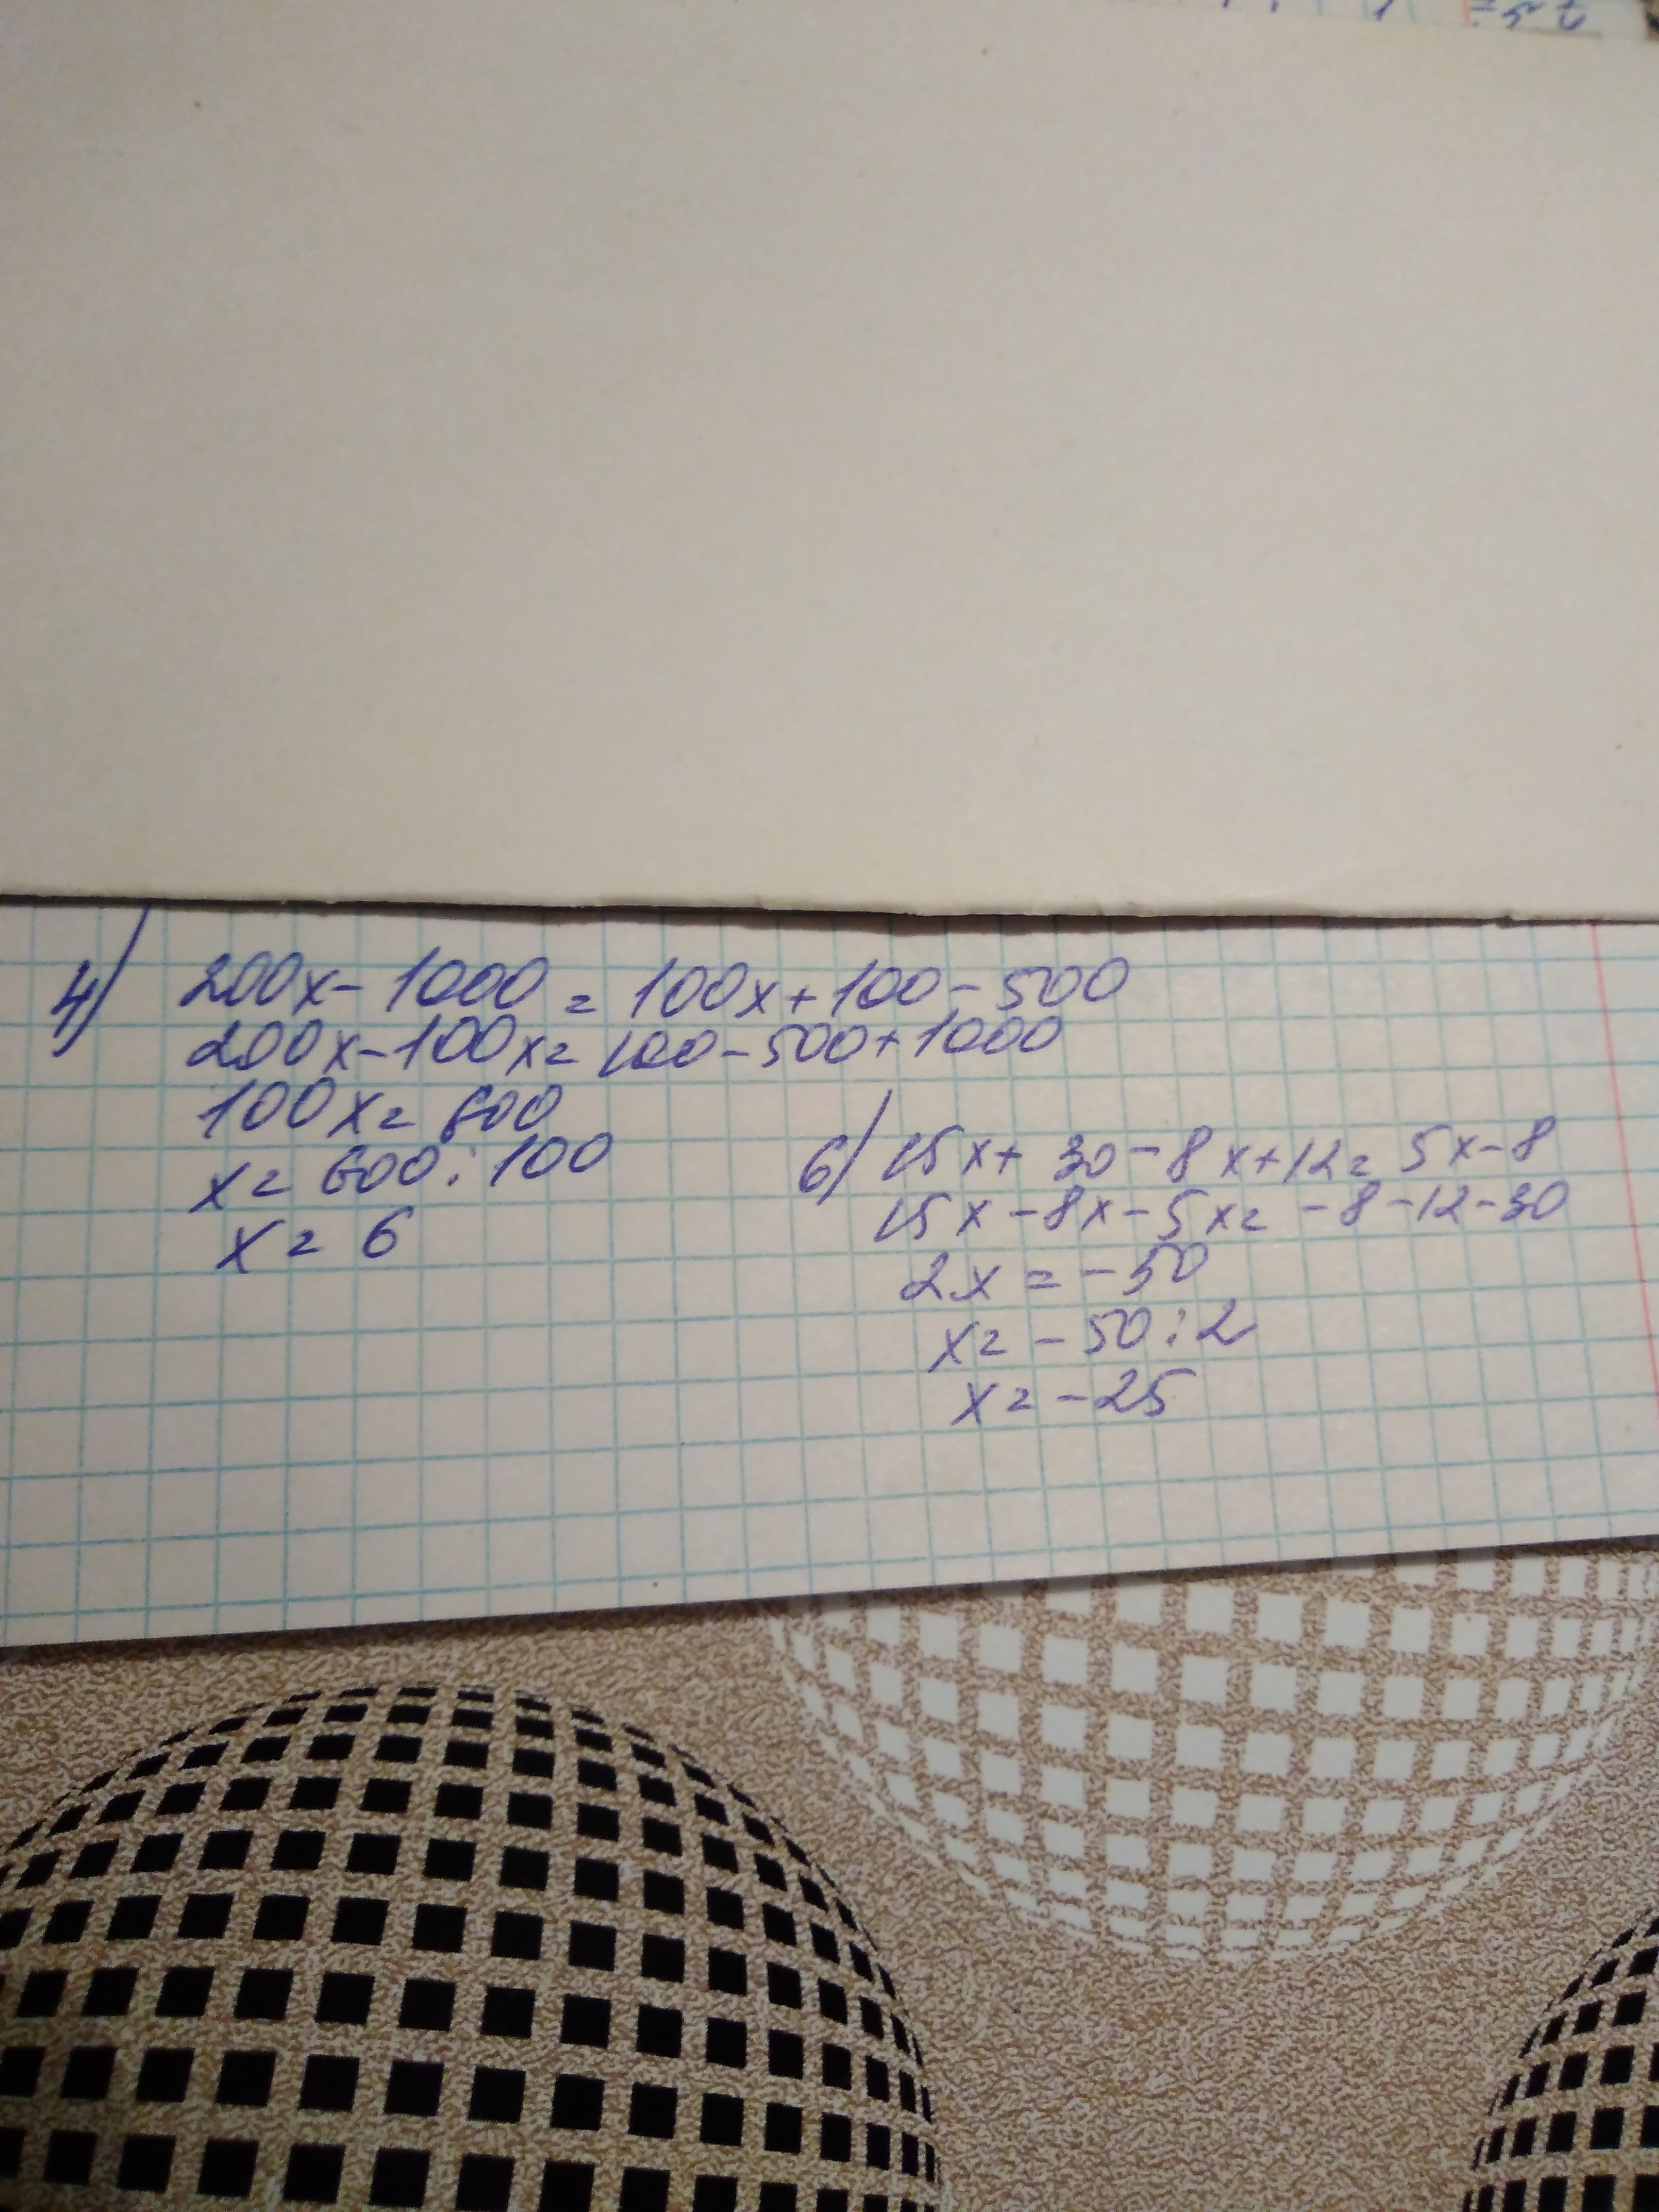 4) 200x - 1000 = 100x + 100 - 500
200x - 100x = 100 - 500 + 1000
100x = 600
x = 600 : 100
x = 6
6) 15x + 30 - 8x + 12 = 5x - 8
15x - 8x - 5x = -8 - 12 - 30
2x = -50
x = -50 : 2
x = -25